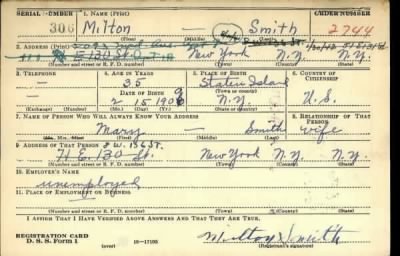 SERIAL NUMBER 1. NAME (Print) ORDER NUMBER
306 Milton Smith 2744
(First) (Middle) (Last)
2. ADDRESS (Print)
E 130 St. New York N.Y. N.Y.
(Number and street or R. F. D. number) (Town) (County) (State)
3. TELEPHONE 4. AGE IN YEARS 5. PLACE OF BIRTH 6. COUNTRY OF CITIZENSHIP
35 Staten Island
DATE OF BIRTH (Town or county)
2 15 1906 N.Y. U.S.
(Exchange) (Number) (Mo.) (Day) (Yr.) (State or country)
7. NAME OF PERSON WHO WILL ALWAYS KNOW YOUR ADDRESS 8. RELATIONSHIP OF THAT PERSON
Mary — Smith wife
(Mr., Mrs., Miss) (First) (Middle) (Last)
9. ADDRESS OF THAT PERSON 8 W. 136 St.
11 E. 130 St. New York N.Y. N.Y.
(Number and street or R. F. D. number) (Town) (County) (State)
10. EMPLOYER'S NAME
unemployed
11. PLACE OF EMPLOYMENT OR BUSINESS
(Number and street or R. F. D. number) (Town) (County) (State)
I AFFIRM THAT I HAVE VERIFIED ABOVE ANSWERS AND THAT THEY ARE TRUE.
REGISTRATION CARD
D. S. S. Form 1 (over) 16—17105 Milton Smith
(Registrant's signature)